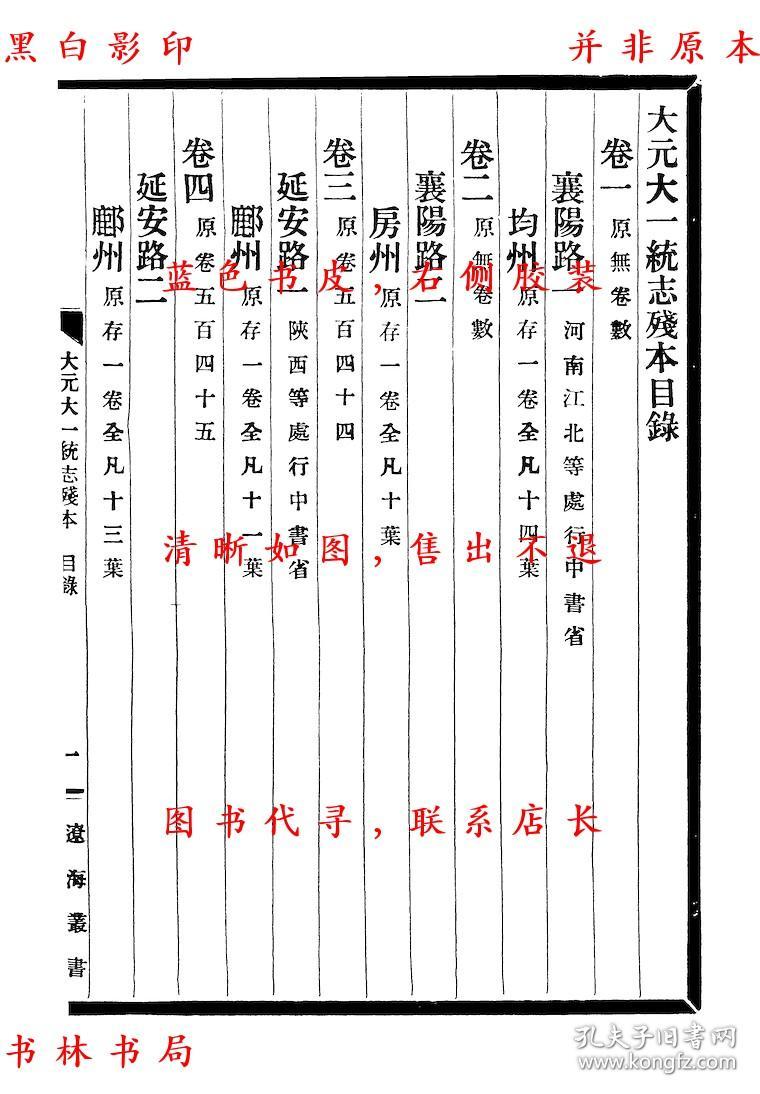 黑白影印
并非原本
大元大一統志殘本目錄
卷一 原無卷數
襄陽路一 河南江北等處行中書省
均州 原存一卷全凡十四葉
卷二 原無卷數
襄陽路二
房州 原存一卷全凡十葉
卷三 原卷五百四十四
延安路一 陝西等處行中書省
鄜州 原存一卷全凡十一葉
卷四 原卷五百四十五
延安路二
鄜州 原存一卷全凡十三葉
大元大一統志殘本 目錄
一
遼海叢書
蓝色书皮,右侧胶装
清晰如图,售出不退
图书代寻,联系店长
书林书局
孔夫子旧书网
www.kongfz.com